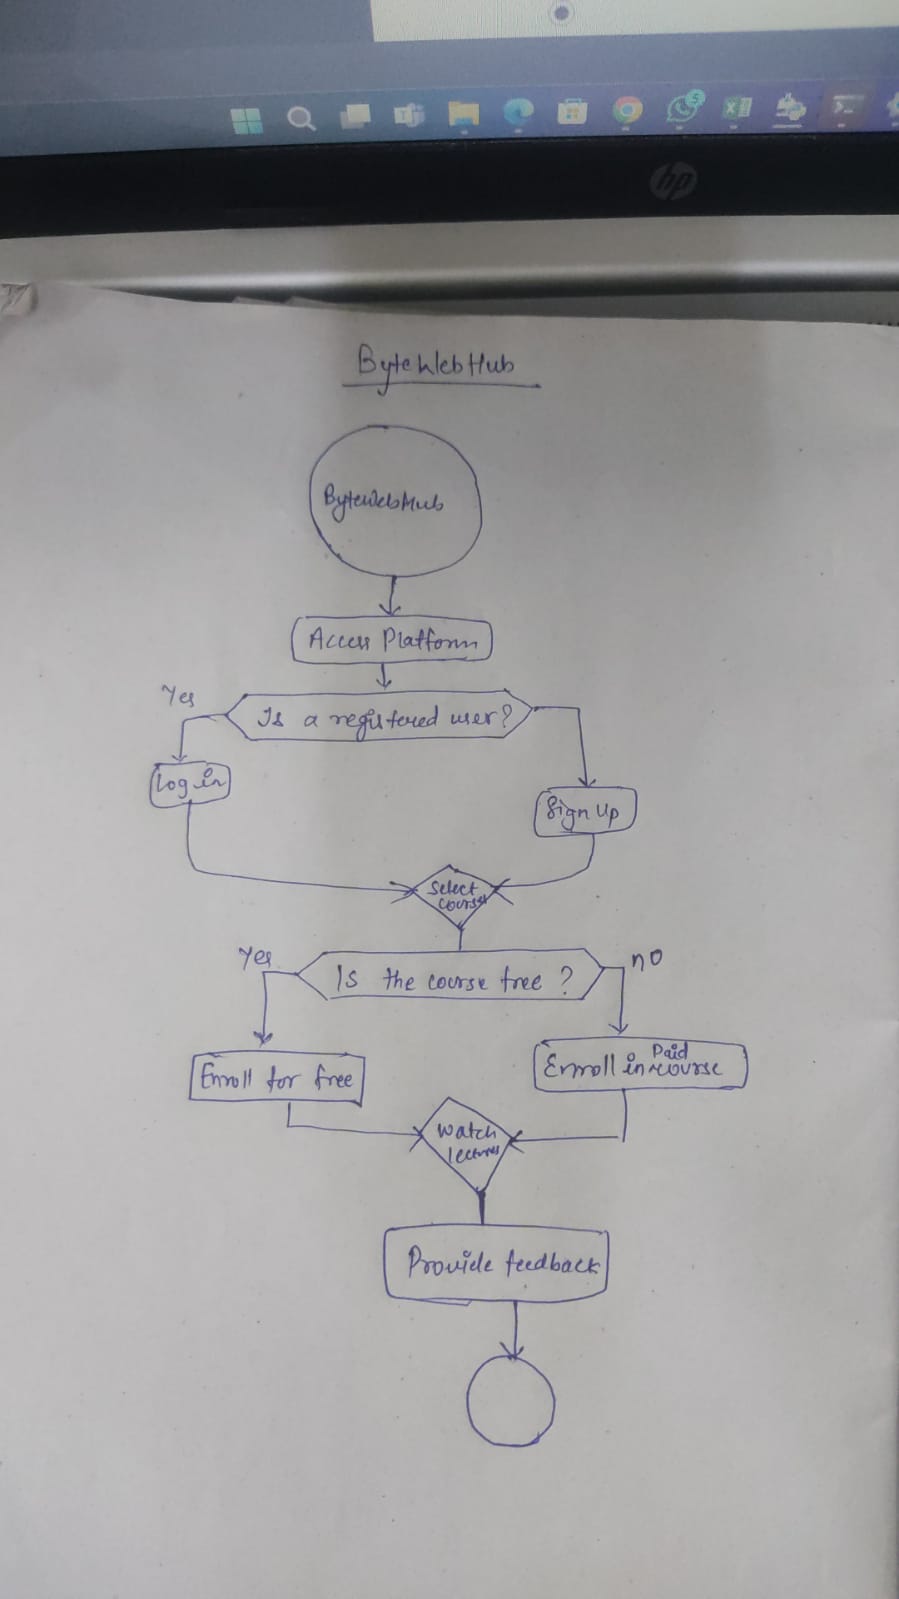 hp
5
ByteWebHub
ByteWebHub
Access Platform
Yes
Is a registered user?
Log in
Sign Up
Select
courses
Yes
no
Is the course free ?
Enroll for free
Enroll in Paid course
Watch
lectures
Provide feedback